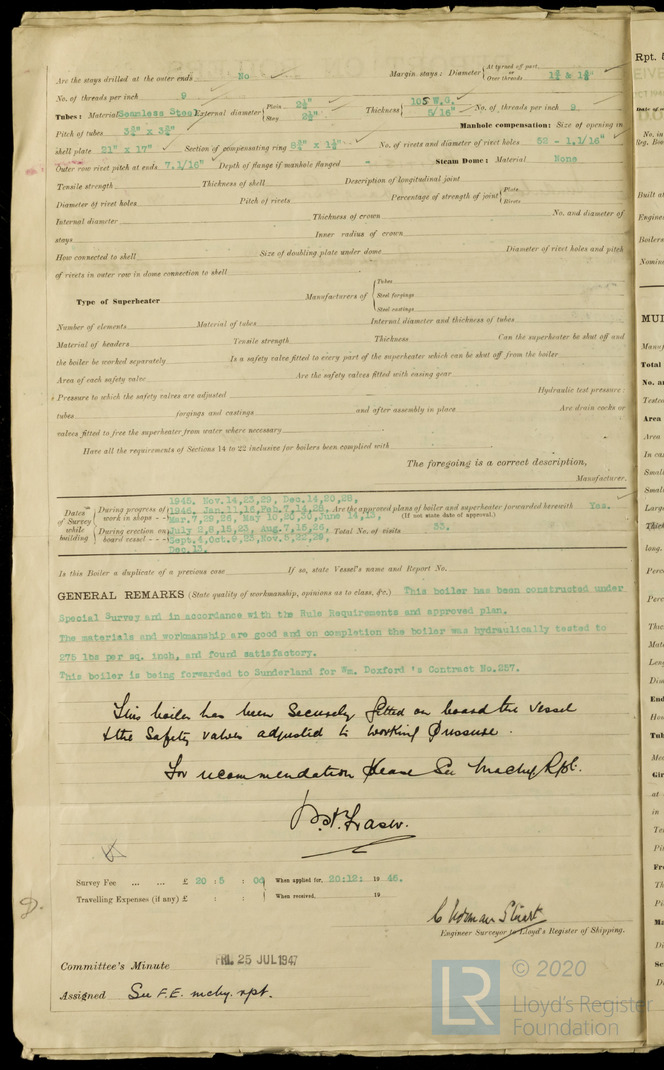 Are the stays drilled at the outer ends No Margin stays: Diameter { At turned off part, or Over threads 1¾ & 1⅞"
No. of threads per inch 9
Tubes: Material Seamless Steel External diameter { Plain 2½" Stay 2½" Thickness { 10 S W.G. 5/16" No. of threads per inch 9
Pitch of tubes 3¾" x 3¾" Manhole compensation: Size of opening in
shell plate 21" x 17" Section of compensating ring No. of rivets and diameter of rivet holes 52 - 1.1/16"
Outer row rivet pitch at ends 7.1/16" Depth of flange if manhole flanged - Steam Dome: Material None
Tensile strength Thickness of shell Description of longitudinal joint
Diameter of rivet holes Pitch of rivets Percentage of strength of joint { Plate Rivets
Internal diameter Thickness of crown No. and diameter of
stays Inner radius of crown
How connected to shell Size of doubling plate under dome Diameter of rivet holes and pitch
of rivets in outer row in dome connection to shell
Type of Superheater Manufacturers of { Tubes Steel forgings Steel castings
Number of elements Material of tubes Internal diameter and thickness of tubes
Material of headers Tensile strength Thickness Can the superheater be shut off and
the boiler be worked separately Is a safety valve fitted to every part of the superheater which can be shut off from the boiler
Area of each safety valve Are the safety valves fitted with easing gear
Pressure to which the safety valves are adjusted Hydraulic test pressure:
tubes forgings and castings and after assembly in place Are drain cocks or
valves fitted to free the superheater from water where necessary
Have all the requirements of Sections 14 to 22 inclusive for boilers been complied with
The foregoing is a correct description,
Manufacturer.
1945. Nov.14,23,29, Dec.14,20,28,
Dates of Survey while building { During progress of work in shops - - 1946. Jan.11,16,Feb.7,14,28, Are the approved plans of boiler and superheater forwarded herewith Yes.
Mar.7,29,26, May 10,26,30,June 14,18, (If not state date of approval.)
During erection on board vessel - - - July 2,8,16,23, Aug.7,16,26, Total No. of visits 33.
Sept.4,Oct.9,23,Nov.5,22,29,
Dec.13.
Is this Boiler a duplicate of a previous case If so, state Vessel's name and Report No.
GENERAL REMARKS (State quality of workmanship, opinions as to class, &c.) This boiler has been constructed under
Special Survey and in accordance with the Rule Requirements and approved plan.
The materials and workmanship are good and on completion the boiler was hydraulically tested to
275 lbs per sq. inch, and found satisfactory.
This boiler is being forwarded to Sunderland for Wm. Doxford 's Contract No.257.
This boiler has been securely fitted on board the vessel
& the safety valves adjusted to working pressure.
For recommendation please see Machy Rpt.
Fraser.
Survey Fee ... ... £ 20 : 5 : 00 When applied for, 20:12: 19 46.
Travelling Expenses (if any) £ : : When received, 19
C Norman Stuart
Engineer Surveyor to Lloyd's Register of Shipping.
Committee's Minute FRI. 25 JUL 1947
Assigned See F.E. mchy. rpt.
LR © 2020
Lloyd's Register
Foundation
Rpt.
MUL